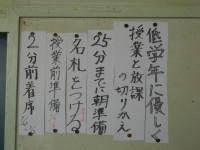 低学年に優しく
授業と放課
の切りかえ
25分までに朝準備
名札をつける
授業前準備
2分前着席